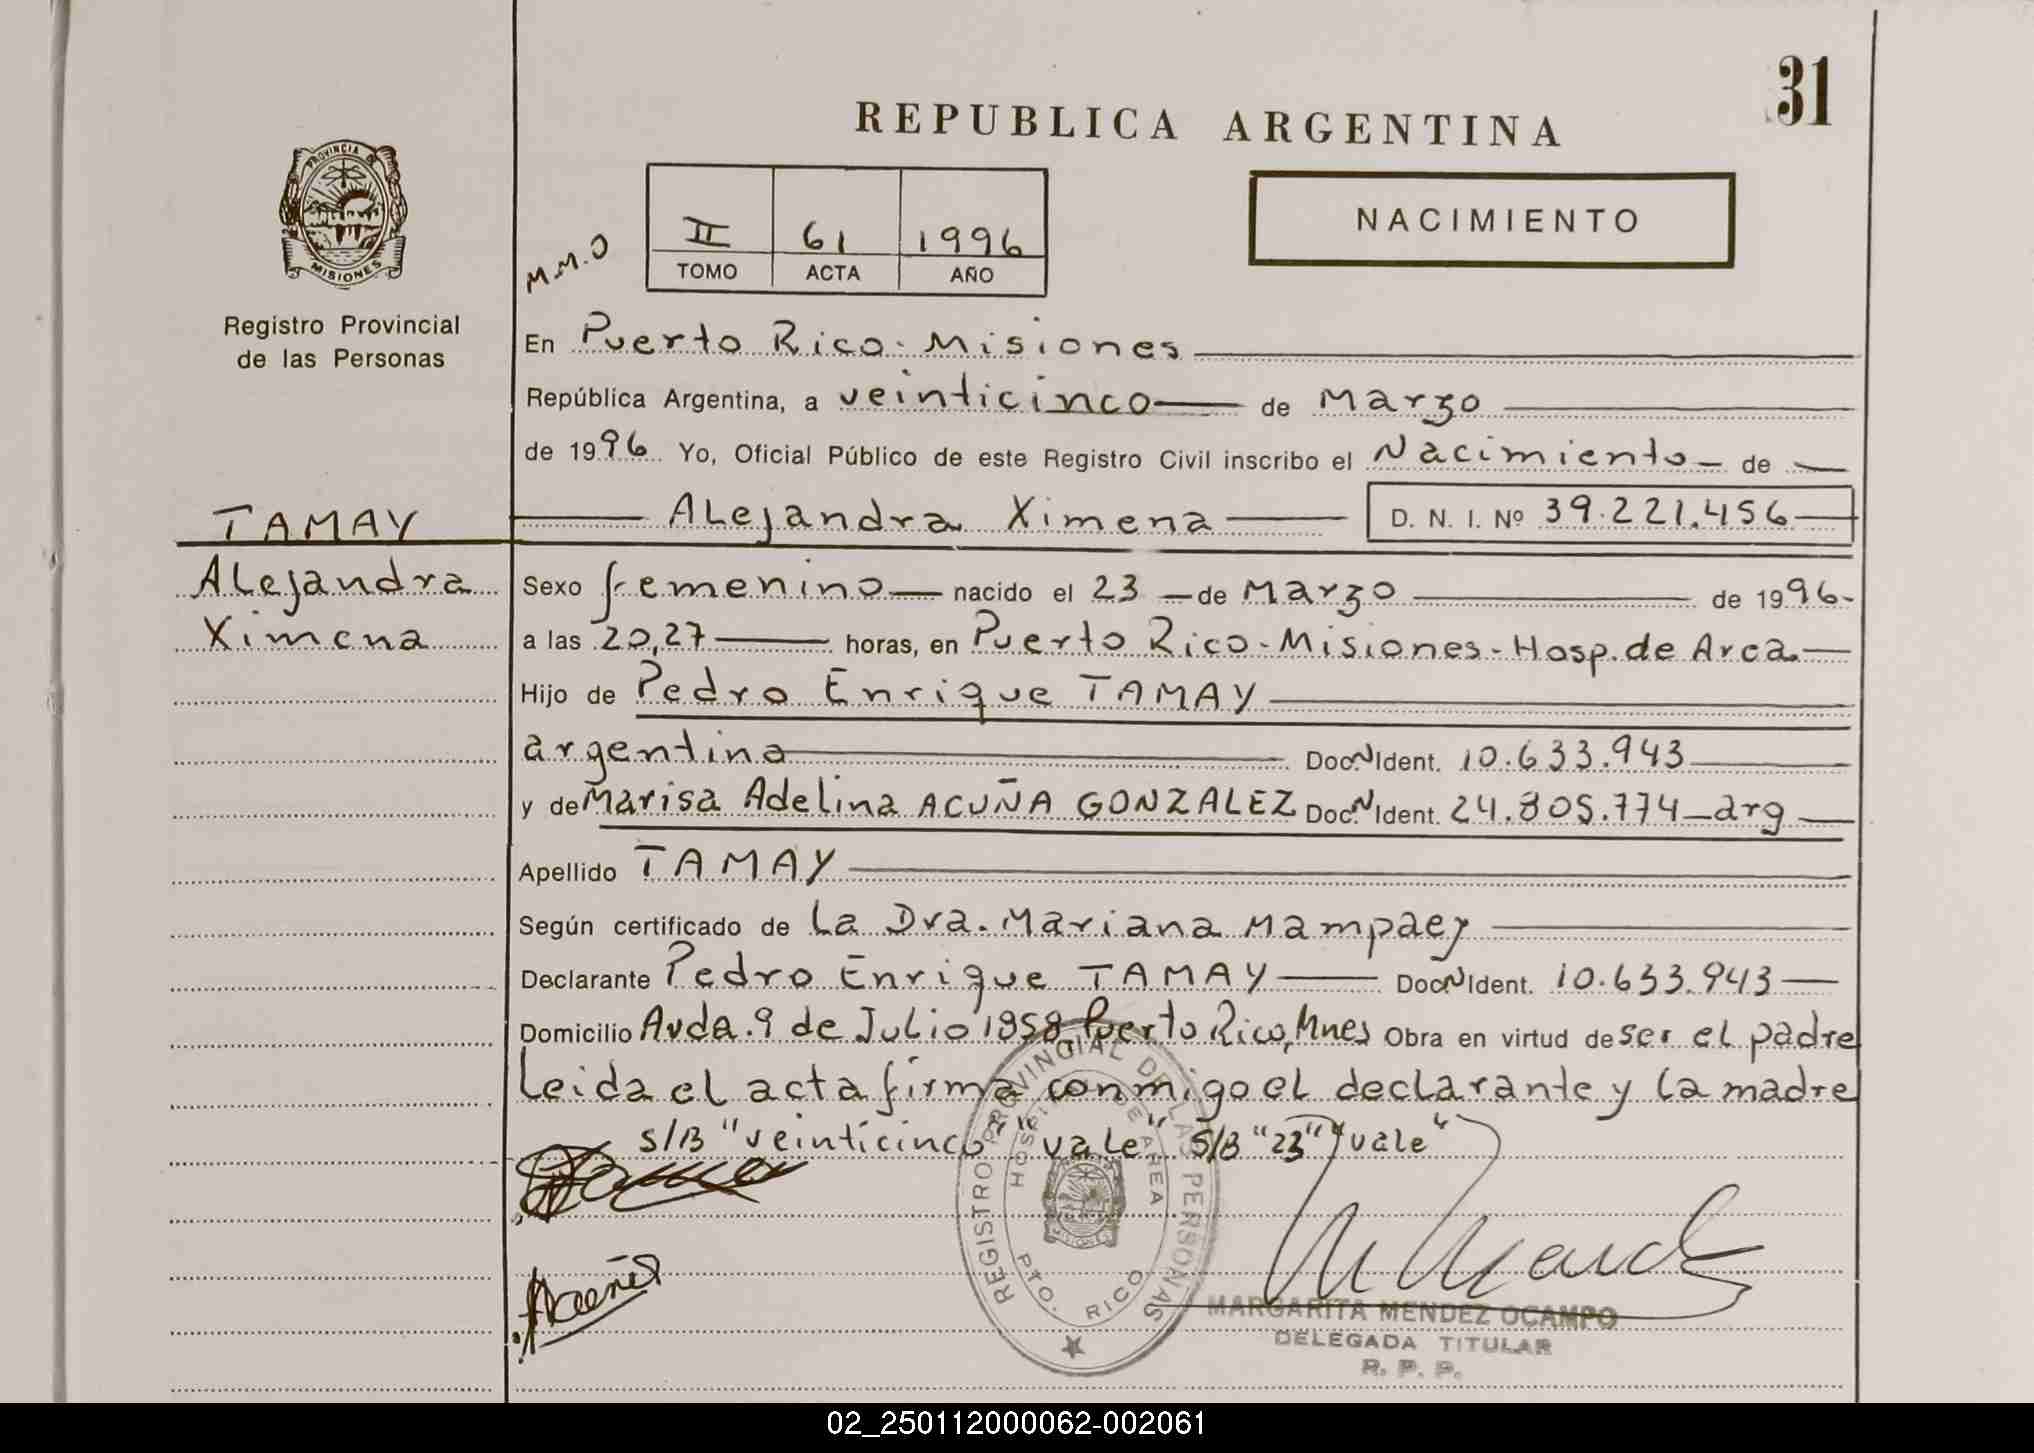 31
REPUBLICA ARGENTINA
PROVINCIA DE
MISIONES
Registro Provincial
de las Personas
NACIMIENTO
M.M.O
II 61 1996
TOMO ACTA AÑO
En Puerto Rico - Misiones
República Argentina, a veinticinco de Marzo
de 1996 Yo, Oficial Público de este Registro Civil inscribo el Nacimiento de
Alejandra Ximena D. N. I. Nº 39.221.456
TAMAY
Alejandra
Ximena
Sexo femenino nacido el 23 de Marzo de 1996-
a las 20,27 horas, en Puerto Rico - Misiones - Hosp. de Area.
Hijo de Pedro Enrique TAMAY
argentino Doc.N Ident. 10.633.943
y de Marisa Adelina ACUÑA GONZALEZ Doc.N Ident. 24.805.774 - arg
Apellido TAMAY
Según certificado de La Dra. Mariana Mampaey
Declarante Pedro Enrique TAMAY Doc.N Ident. 10.633.943
Domicilio Avda. 9 de Julio 1958, Puerto Rico, Mnes Obra en virtud de ser el padre
Leida el acta firma conmigo el declarante y la madre
S/B "veinticinco" "vale" S/B "23" "vale"
REGISTRO PROVINCIAL DE LAS PERSONAS
HOSPITAL DE AREA
MISIONES
PTO. RICO
MARGARITA MENDEZ OCAMPO
DELEGADA TITULAR
R. P. P.
02_250112000062-002061